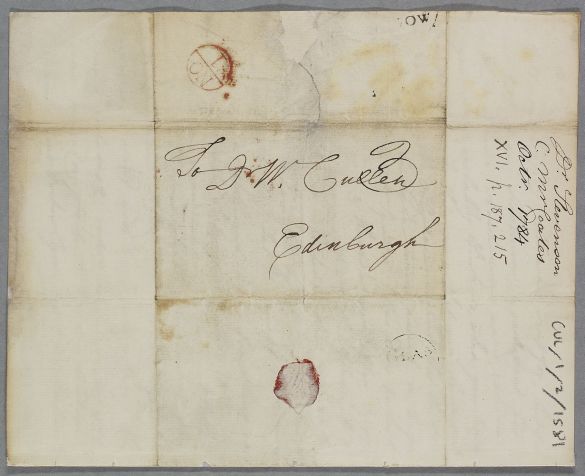 To Dr. W. Cullen
Edinburgh
Dr. Stevenson
C. Mr Coates
Octr. 1784
XVI. p. 187, 215
CUL/1/2/1581